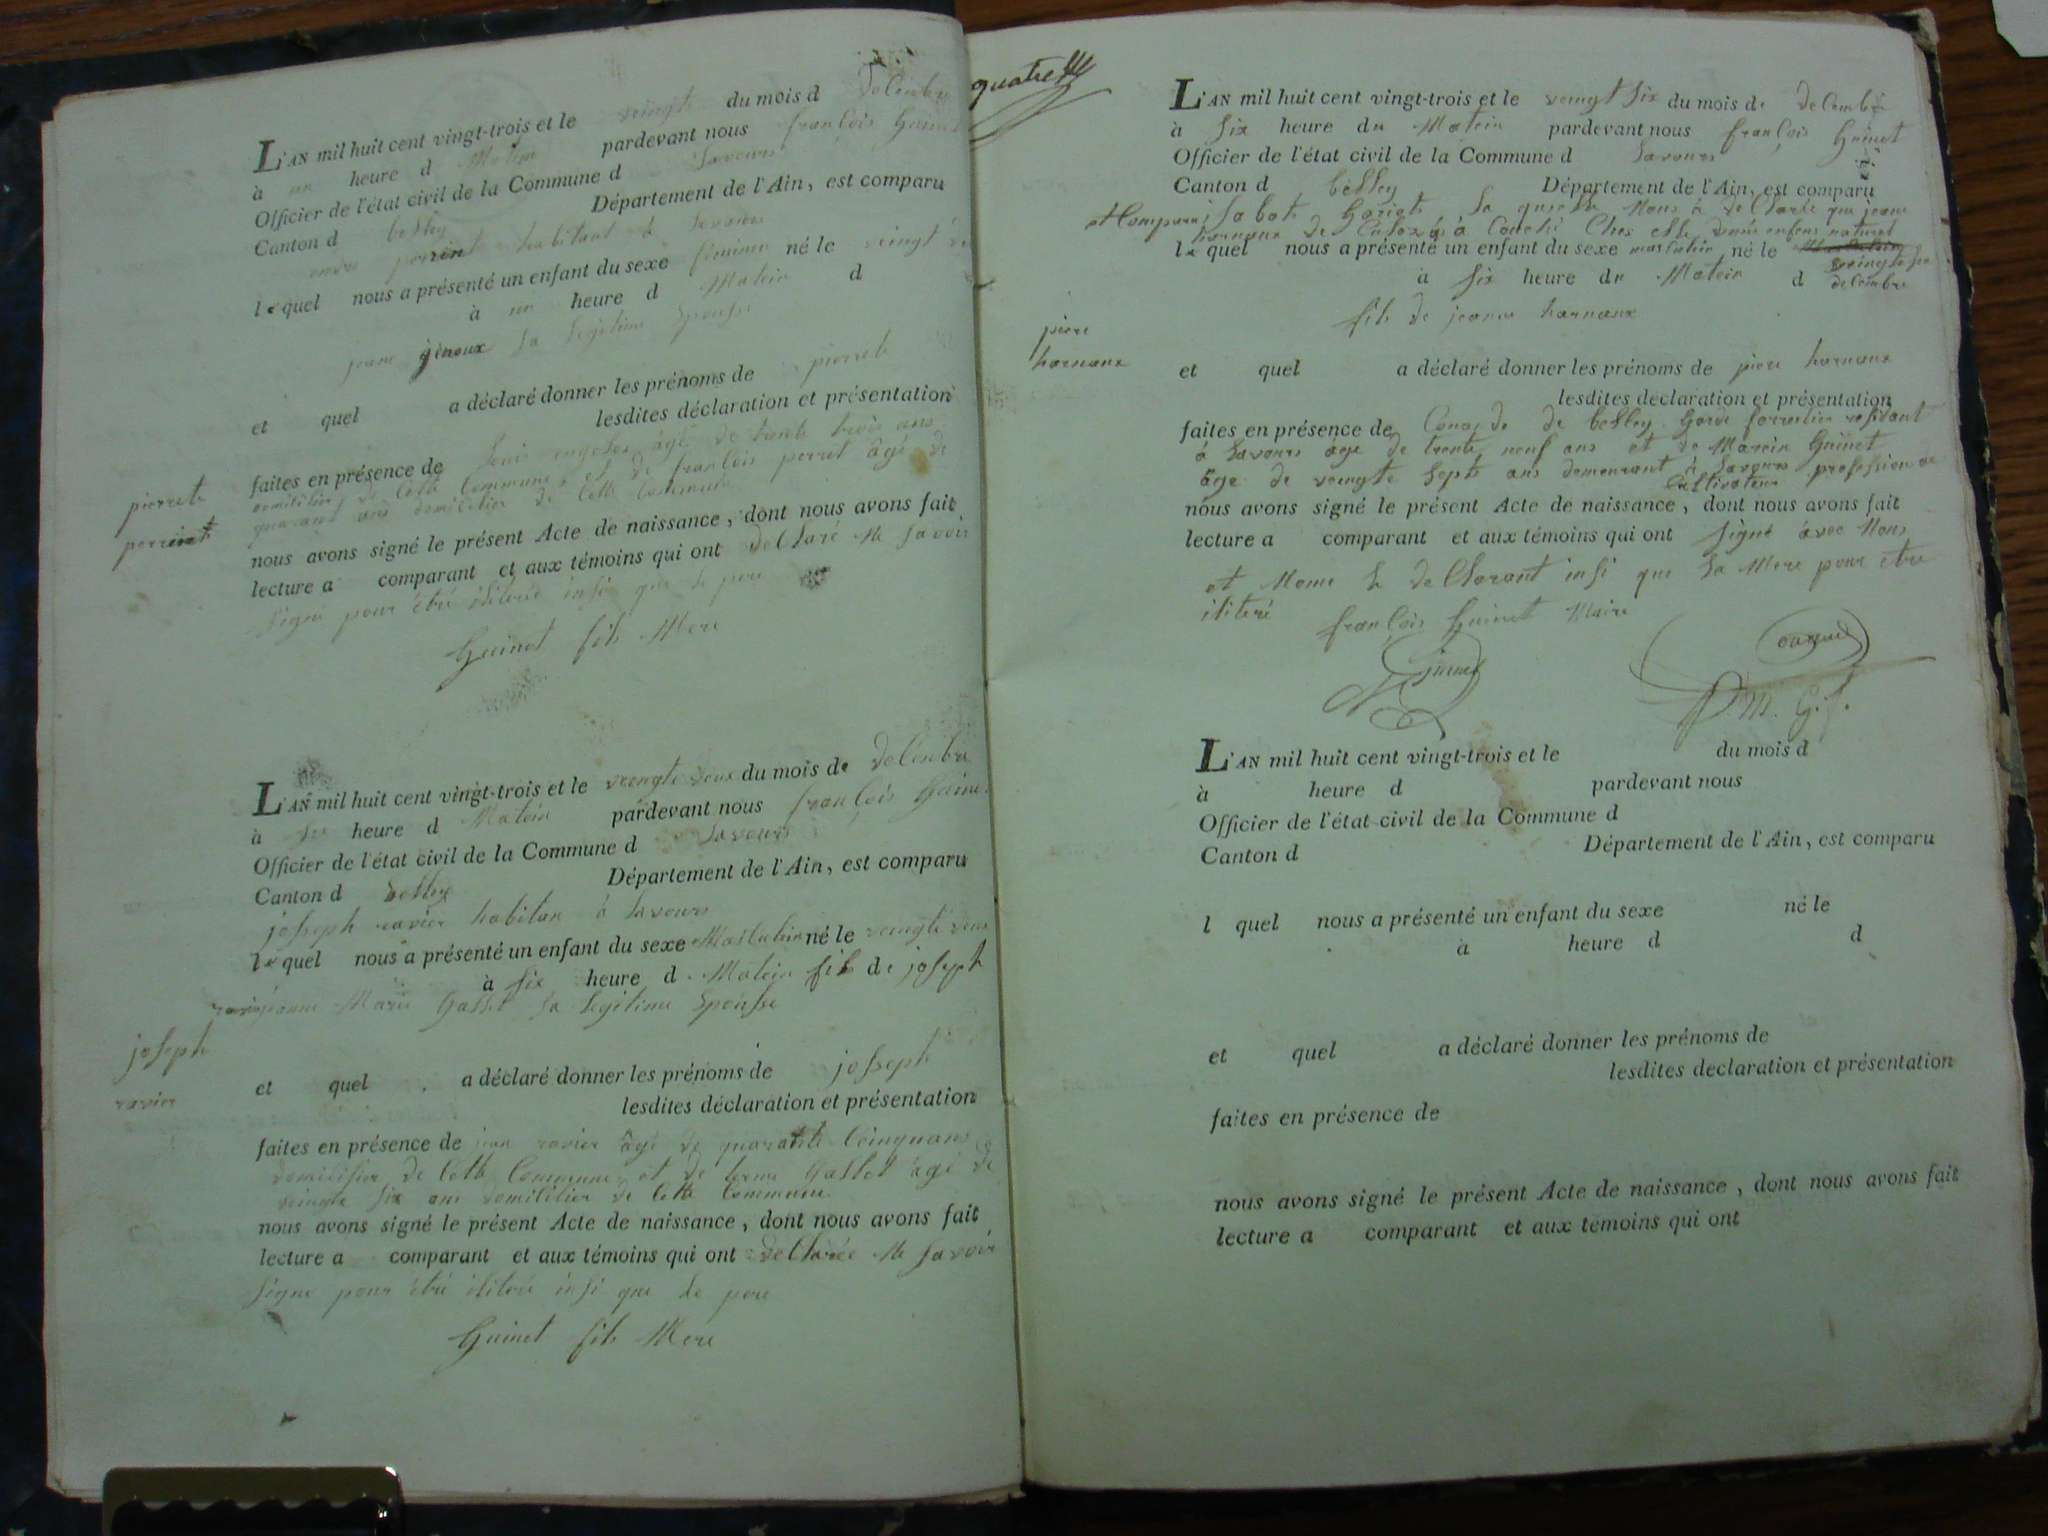 L'AN mil huit cent vingt-trois et le veingte du mois d decembre
à un heure d Matin pardevant nous françois Guinet
Officier de l'état civil de la Commune d Savours
Canton d belley Département de l'Ain, est comparu
perrin habitant à Savours
lequel nous a présenté un enfant du sexe féminin né le veingt
à un heure d Matin d
jeane génoux sa legitime Epousse
et quel a déclaré donner les prénoms de pierrete
lesdites déclaration et présentation
pierrete
faites en présence de âgé de trente trois ans
domicilier de cette Commune et de françois perret âgé de
quarant ans domicilier de cette Commune
nous avons signé le présent Acte de naissance, dont nous avons fait
lecture a comparant et aux témoins qui ont declaré Ne savoir
signé pour étré ilitéré insi que le pere
Guinet fils Mere
L'AN mil huit cent vingt-trois et le veingte deux du mois de decembre
à six heure d Matein pardevant nous françois Guinet
Officier de l'état civil de la Commune d Savours
Canton d belley Département de l'Ain, est comparu
josseph ravier habitan à Savours
lequel nous a présenté un enfant du sexe Masculein né le veingte deux
à six heure d Matein fils de joseph
ravier jeanne Marie Gallet sa legitime Epousse
joseph
ravier
et quel a déclaré donner les prénoms de josseph
lesdites déclaration et présentation
faites en présence de jean ravier âgé de quarante Ceinquans
domicilier de Cette Commune et de Gallet âgé de
veingte six ans domicilier de Cette Commune
nous avons signé le présent Acte de naissance, dont nous avons fait
lecture a comparant et aux témoins qui ont declarée Ne savoir
signé pour étré ilitéré insi que le pere
Guinet fils Mere
quatre
L'AN mil huit cent vingt-trois et le veingt six du mois de decembre
à six heure du Matein pardevant nous françois Guinet
Officier de l'état civil de la Commune d Savours
Canton d belley Département de l'Ain, est comparu
et Comparu isabote la quelle Nous à declarée que jeane
harnaux de à Couché Ches elle enfens naturel
lequel nous a présenté un enfant du sexe masculein né le veingte six
à six heure du Matein d decembre
fils de jeanne harnaux
piere
harnaux
et quel a déclaré donner les prénoms de piere harnaux
lesdites déclaration et présentation
faites en présence de de belley Garde forrestier residant
à Savours âgé de trente neuf ans et de Marein Guinet
âgé de veingte septs ans demeurant à Savours profession de
Cultivateur
nous avons signé le présent Acte de naissance, dont nous avons fait
lecture a comparant et aux témoins qui ont signé avec Nous
et Nome le declarant insi que la Mere pour étre
ilitéré françois Guinet Maire
L'AN mil huit cent vingt-trois et le du mois d
à heure d pardevant nous
Officier de l'état civil de la Commune d
Canton d Département de l'Ain, est comparu
l quel nous a présenté un enfant du sexe né le
à heure d d
et quel a déclaré donner les prénoms de
lesdites déclaration et présentation
faites en présence de
nous avons signé le présent Acte de naissance, dont nous avons fait
lecture a comparant et aux témoins qui ont